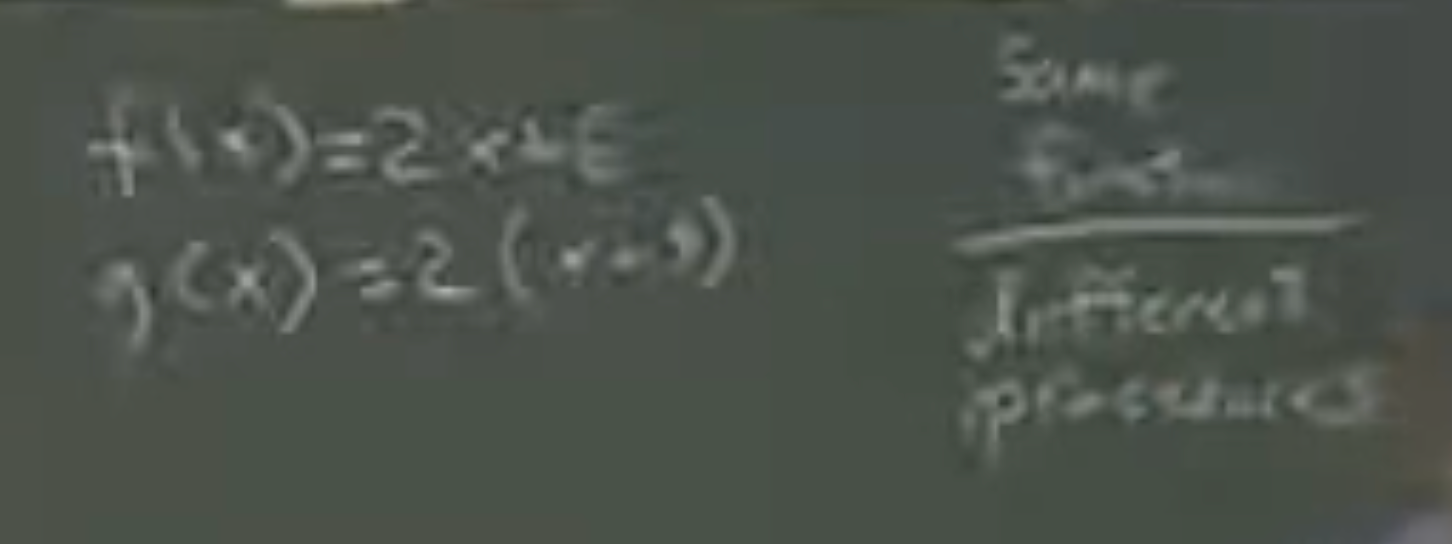 f(x)=2x+6
g(x)=2(x+3)
Same
function
different
procedures